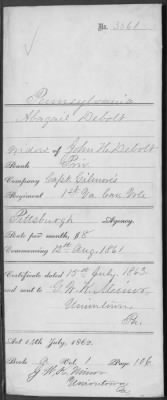 No. 3861
Pennsylvania
Abagail Debolt
widow of John H. Debolt
Rank Priv
Company Capt Gilmore's
Regiment 1st Va Cav Vols
Pittsburgh Agency.
Rate per month, $8
Commencing 12th Aug. 1861
Certificate dated 15th July, 1863.
and sent to G. W. K. Minor,
Uniontown
Pa.
Act 14th July, 1862.
Book Vol. 1 Page 106
G W K Minor
Uniontown
Pa